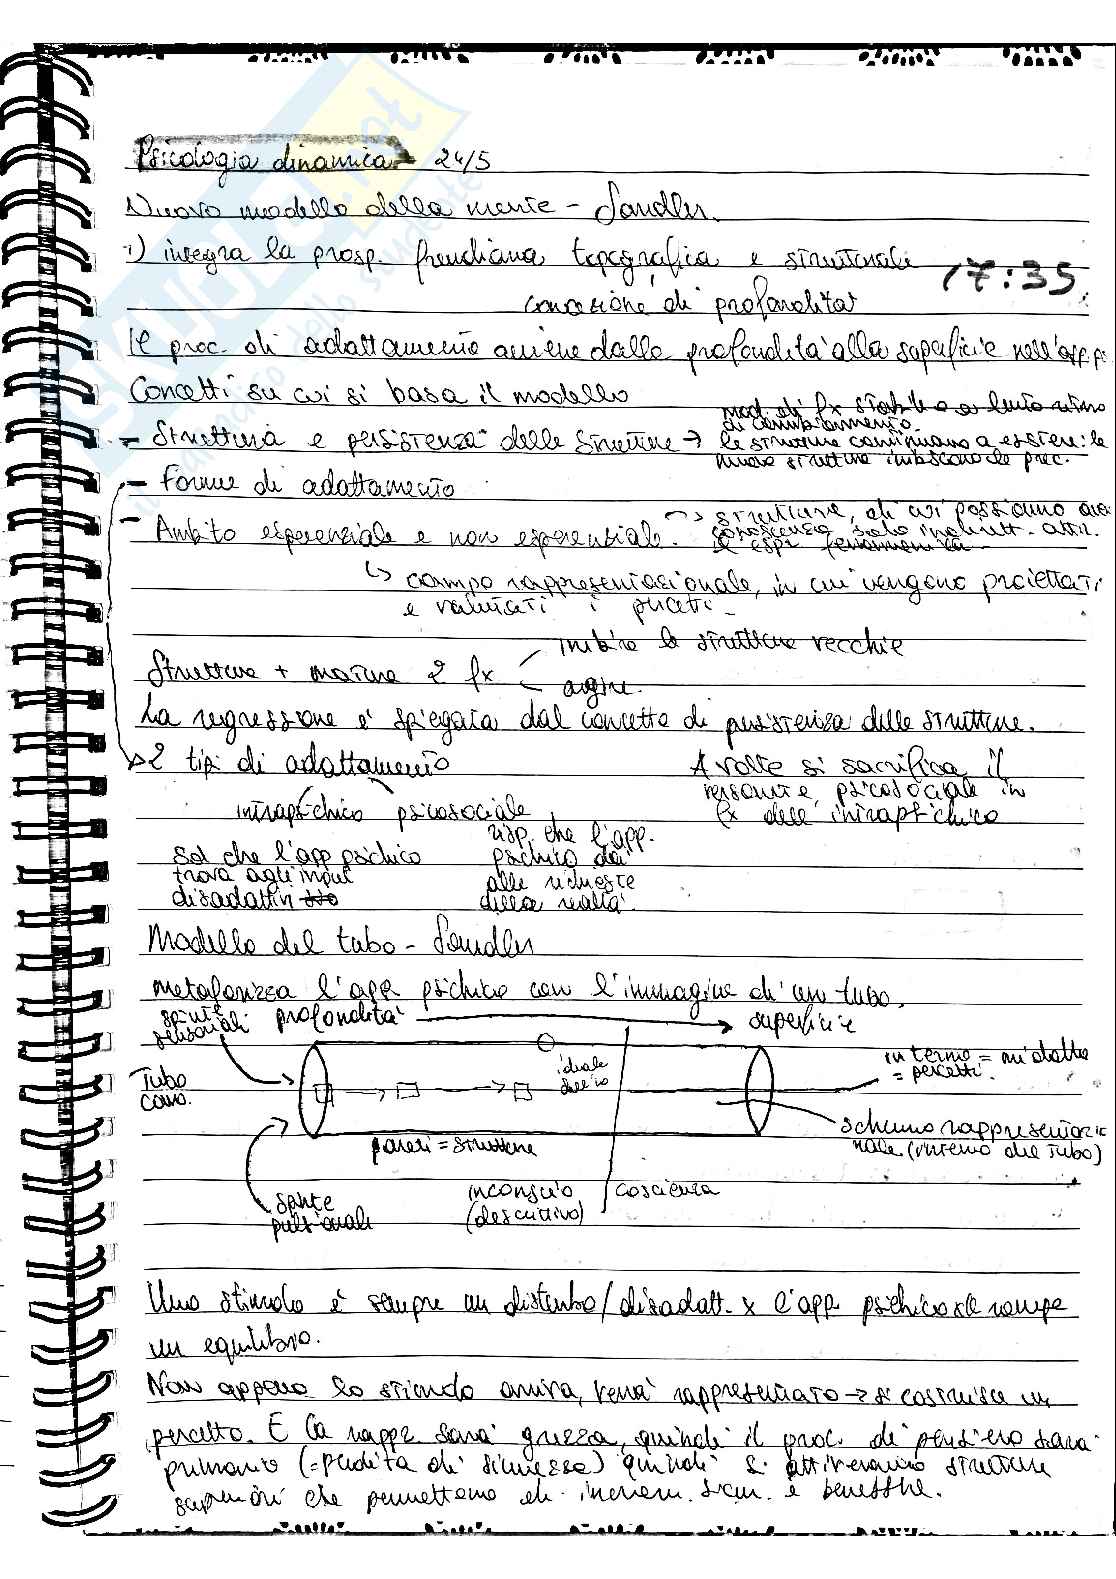 Psicologia dinamica - 24/5
Nuovo modello della mente - Sandler.
1) integra la prosp. freudiana topografica e strutturale
17:35
concezione di profondità
Il proc. di adattamento avviene dalla profondità alla superficie nell'app. p
Concetti su cui si basa il modello
- Struttura e persistenza delle strutture → mod. di fx stabile o a lento ritmo
di cambiamento.
le strutture continuano a esistere: le
nuove strutture inibiscono le prec.
- Forme di adattamento
- Ambito esperenziale e non esperenziale. → strutture, di cui possiamo
conoscenza solo indirett. attr.
le esp. fenomeniche
↳ campo rappresentazionale, in cui vengono proiettati
e valutati i percetti.
Strutture + mature 2 fx
inibire le strutture vecchie
agire.
La regressione è spiegata dal concetto di persistenza delle strutture.
→ 2 tipi di adattamento
intrapsichico psicosociale
sol che l'app psichico
trova agli input
disadattivi
risp. che l'app.
psichico dà
alle richieste
della realtà.
A volte si sacrifica il
versante psicosociale in
fx dell'intrapsichico
Modello del tubo - Sandler
metaforizza l'app psichico con l'immagine di un tubo.
spinte
sensoriali
profondità → superficie
Tubo
cavo.
ideale
dell'io
interno = mi datto
= percetti.
schermo rappresentazio
nale (interno del tubo)
pareti = strutture
spinte
pulsionali
inconscio
(descrittivo)
coscienza
Uno stimolo è sempre un disturbo/disadatt. x l'app psichico xkè rompe
un equilibrio.
Non appena lo stimolo arriva, verrà rappresentato → si costruisce un
percetto. E la rappr sarà grezza, quindi il proc. di pensiero sarà
primario (= perdita di sicurezza) quindi si attiveranno strutture
superiori che permettono di increm. sicur. e benessere.